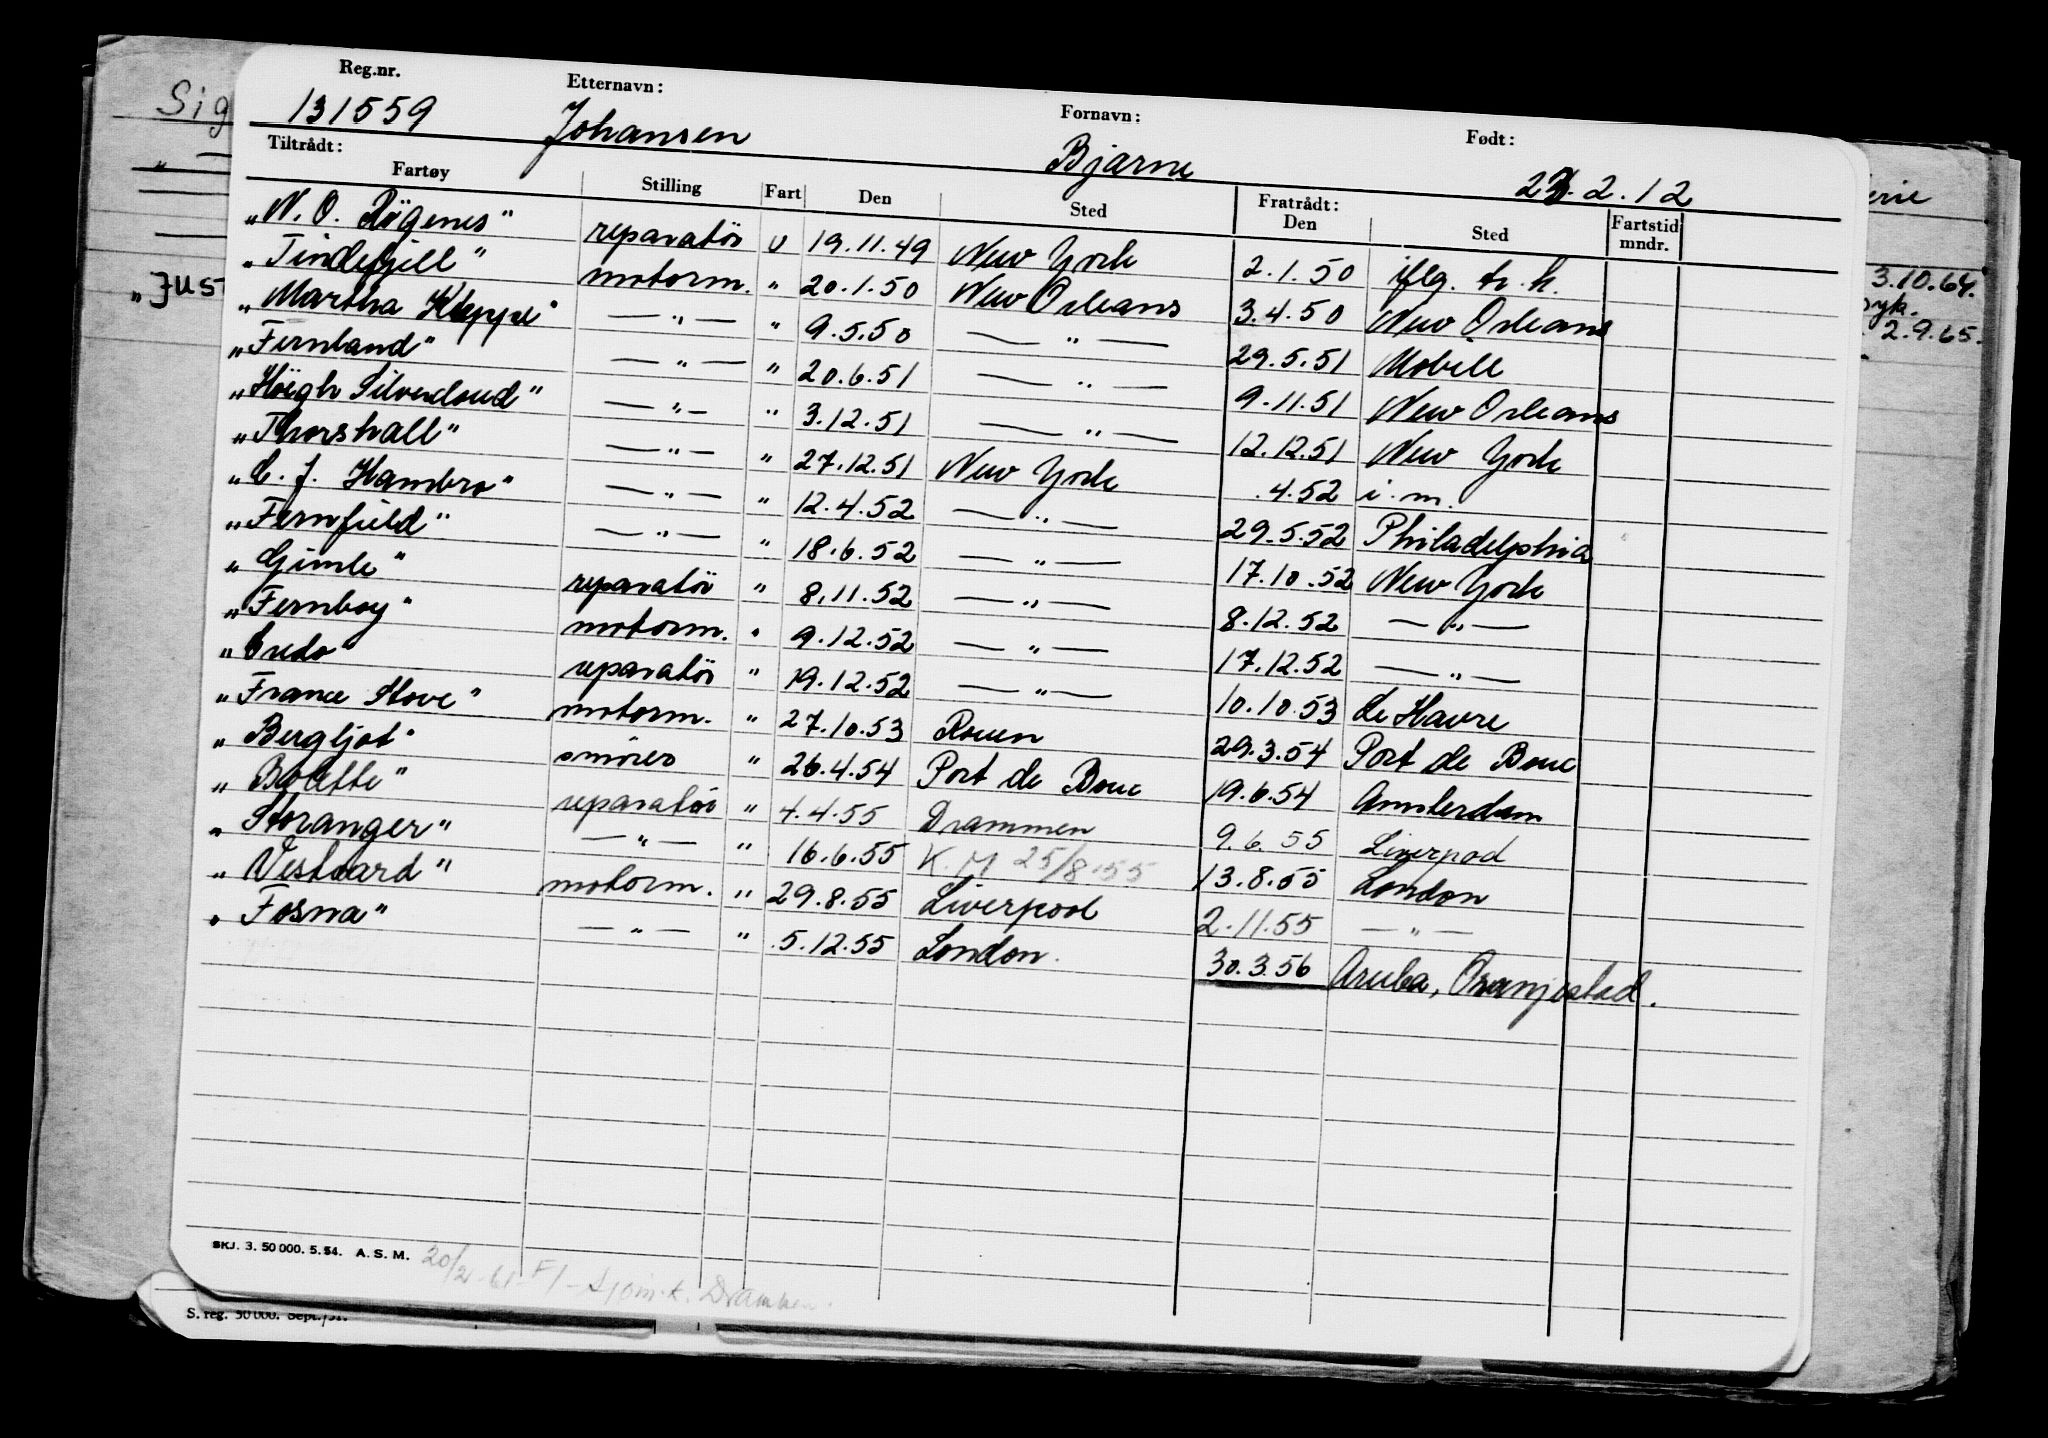 Reg.nr. Etternavn: Fornavn: Født:
131559 Johansen Bjarne 2.12
Tiltrådt: Fratrådt:
Fartøy Stilling Fart Den Sted Den Sted Fartstid mndr.
„N. O. Røgenes" reparatör U 19.11.49 New York 2.1.50 iflg. tr. h.
„Tindefjell" motorm. " 20.1.50 New Orleans 3.4.50 New Orleans
„Martha Kleppe" — " — " 9.5.50 — " — 29.5.51 Mobile
„Fernland" — " — " 20.6.51 — " — 9.11.51 New Orleans
„Höegh Silvercloud" — " — " 3.12.51 — " — 12.12.51 New York
„Thorshall" — " — " 27.12.51 New York .4.52 i. m.
„C. J. Hambro" — " — " 12.4.52 — " — 29.5.52 Philadelphia
„Fernfield" — " — " 18.6.52 — " — 17.10.52 New York
„Gimle" reparatör " 8.11.52 — " — 8.12.52 — " —
„Fernbay" motorm. " 9.12.52 — " — 17.12.52 — " —
„Credo" reparatör " 19.12.52 — " — 10.10.53 Le Havre
„France Stove" motorm. " 27.10.53 Rouen 29.3.54 Port de Bouc
„Bergljot" smörer " 26.4.54 Port de Bouc 19.6.54 Amsterdam
„Bolette" reparatör " 4.4.55 Drammen 9.6.55 Liverpool
„Storanger" — " — " 16.6.55 K. M 25/8.55 13.8.55 London
„Vestvard" motorm. " 29.8.55 Liverpool 2.11.55 — " —
„Fosna" — " — " 5.12.55 London. 30.3.56 Aruba, Oranjestad.
SKJ. 3. 50 000. 5. 54. A. S. M. 20/2-61 Drammen.
S. reg. 50 000. Sept./51.
Sig
„Just
erie
3.10.64.
2.9.65.